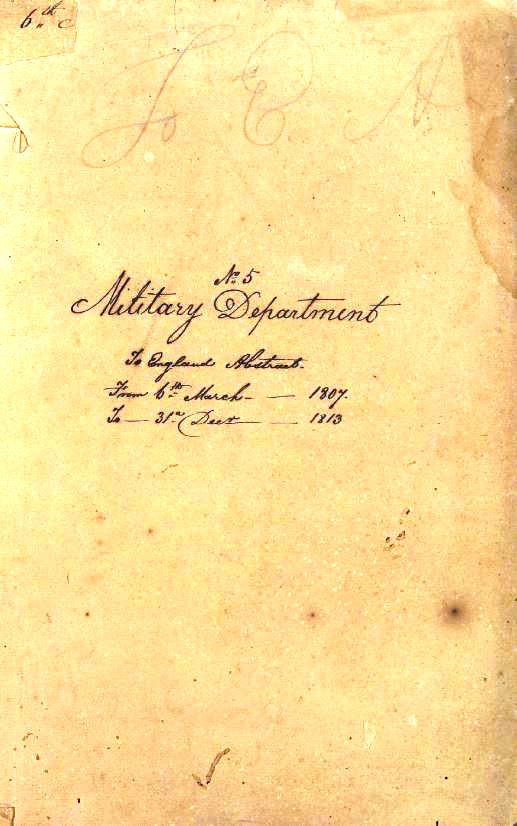 6th C
To E A
No. 5
Military Department
To England Abstract.
From 6th March — 1807.
To — 31st Decr — 1813